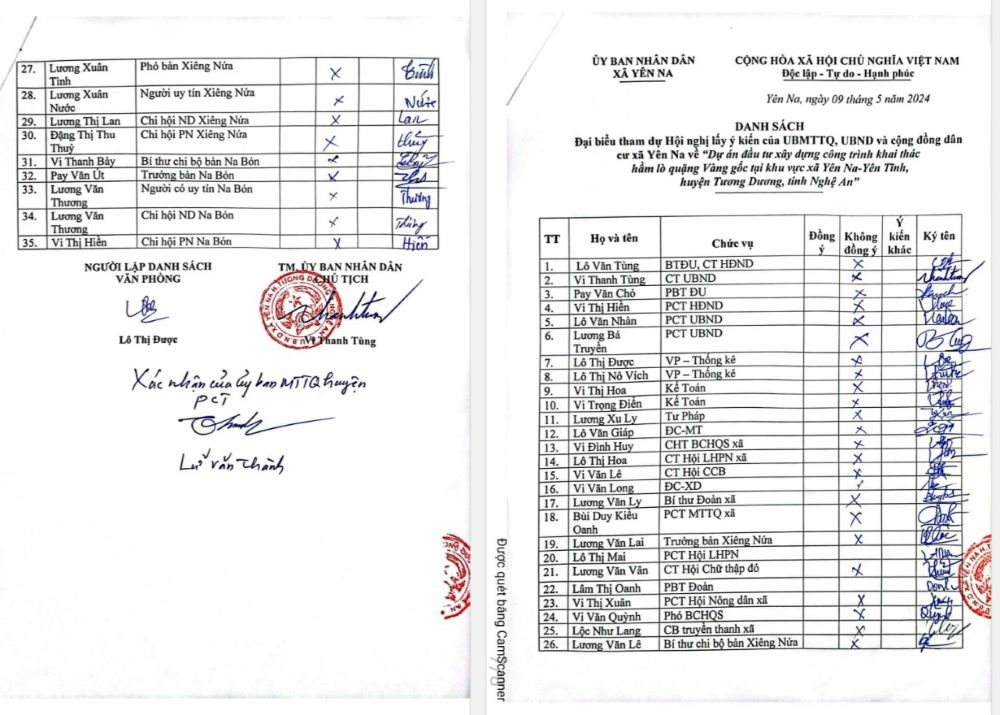 27. Lương Xuân Tình Phó bản Xiêng Nứa X
28. Lương Xuân Nước Người uy tín Xiêng Nứa X
29. Lương Thị Lan Chi hội ND Xiêng Nứa X Lan
30. Đặng Thị Thu Thuỷ Chi hội PN Xiêng Nứa X
31. Vi Thanh Bảy Bí thư chi bộ bản Na Bón X
32. Pay Văn Út Trưởng bản Na Bón X
33. Lương Văn Thương Người có uy tín Na Bón X Thương
34. Lương Văn Thương Chi hội ND Na Bón X
35. Vi Thị Hiền Chi hội PN Na Bón X Hiền
NGƯỜI LẬP DANH SÁCH
VĂN PHÒNG
Lô Thị Được
TM. ỦY BAN NHÂN DÂN
CHỦ TỊCH
Vi Thanh Tùng
Xác nhận của ủy ban MTTQ huyện
PCT
Lư văn Thành
Được quét bằng CamScanner
ỦY BAN NHÂN DÂN
XÃ YÊN NA
CỘNG HÒA XÃ HỘI CHỦ NGHĨA VIỆT NAM
Độc lập - Tự do - Hạnh phúc
Yên Na, ngày 09 tháng 5 năm 2024
DANH SÁCH
Đại biểu tham dự Hội nghị lấy ý kiến của UBMTTQ, UBND và cộng đồng dân
cư xã Yên Na về “Dự án đầu tư xây dựng công trình khai thác
hầm lò quặng Vàng gốc tại khu vực xã Yên Na-Yên Tĩnh,
huyện Tương Dương, tỉnh Nghệ An”
TT Họ và tên Chức vụ Đồng ý Không đồng ý Ý kiến khác Ký tên
1. Lô Văn Tùng BTĐU, CT HĐND X
2. Vi Thanh Tùng CT UBND X
3. Pay Văn Chỏ PBT ĐU X
4. Vi Thị Hiền PCT HĐND X
5. Lô Văn Nhàn PCT UBND X
6. Lương Bá Truyền PCT UBND X
7. Lô Thị Được VP – Thống kê X
8. Lô Thị Nô Vích VP – Thống kê X
9. Vi Thị Hoa Kế Toán X
10. Vi Trọng Điển Kế Toán X
11. Lương Xu Ly Tư Pháp X
12. Lô Văn Giáp ĐC-MT X
13. Vi Đình Huy CHT BCHQS xã X
14. Lô Thị Hoa CT Hội LHPN xã X
15. Vi Văn Lê CT Hội CCB X
16. Vi Văn Long ĐC-XD X
17. Lương Văn Ly Bí thư Đoàn xã X
18. Bùi Duy Kiều Oanh PCT MTTQ xã X
19. Lương Văn Lai Trưởng bản Xiêng Nứa X
20. Lô Thị Mai PCT Hội LHPN
21. Lương Văn Vân CT Hội Chữ thập đỏ X
22. Lâm Thị Oanh PBT Đoàn
23. Vi Thị Xuân PCT Hội Nông dân xã X
24. Vi Văn Quỳnh Phó BCHQS X
25. Lộc Như Lang CB truyền thanh xã X
26. Lương Văn Lê Bí thư chi bộ bản Xiêng Nứa X